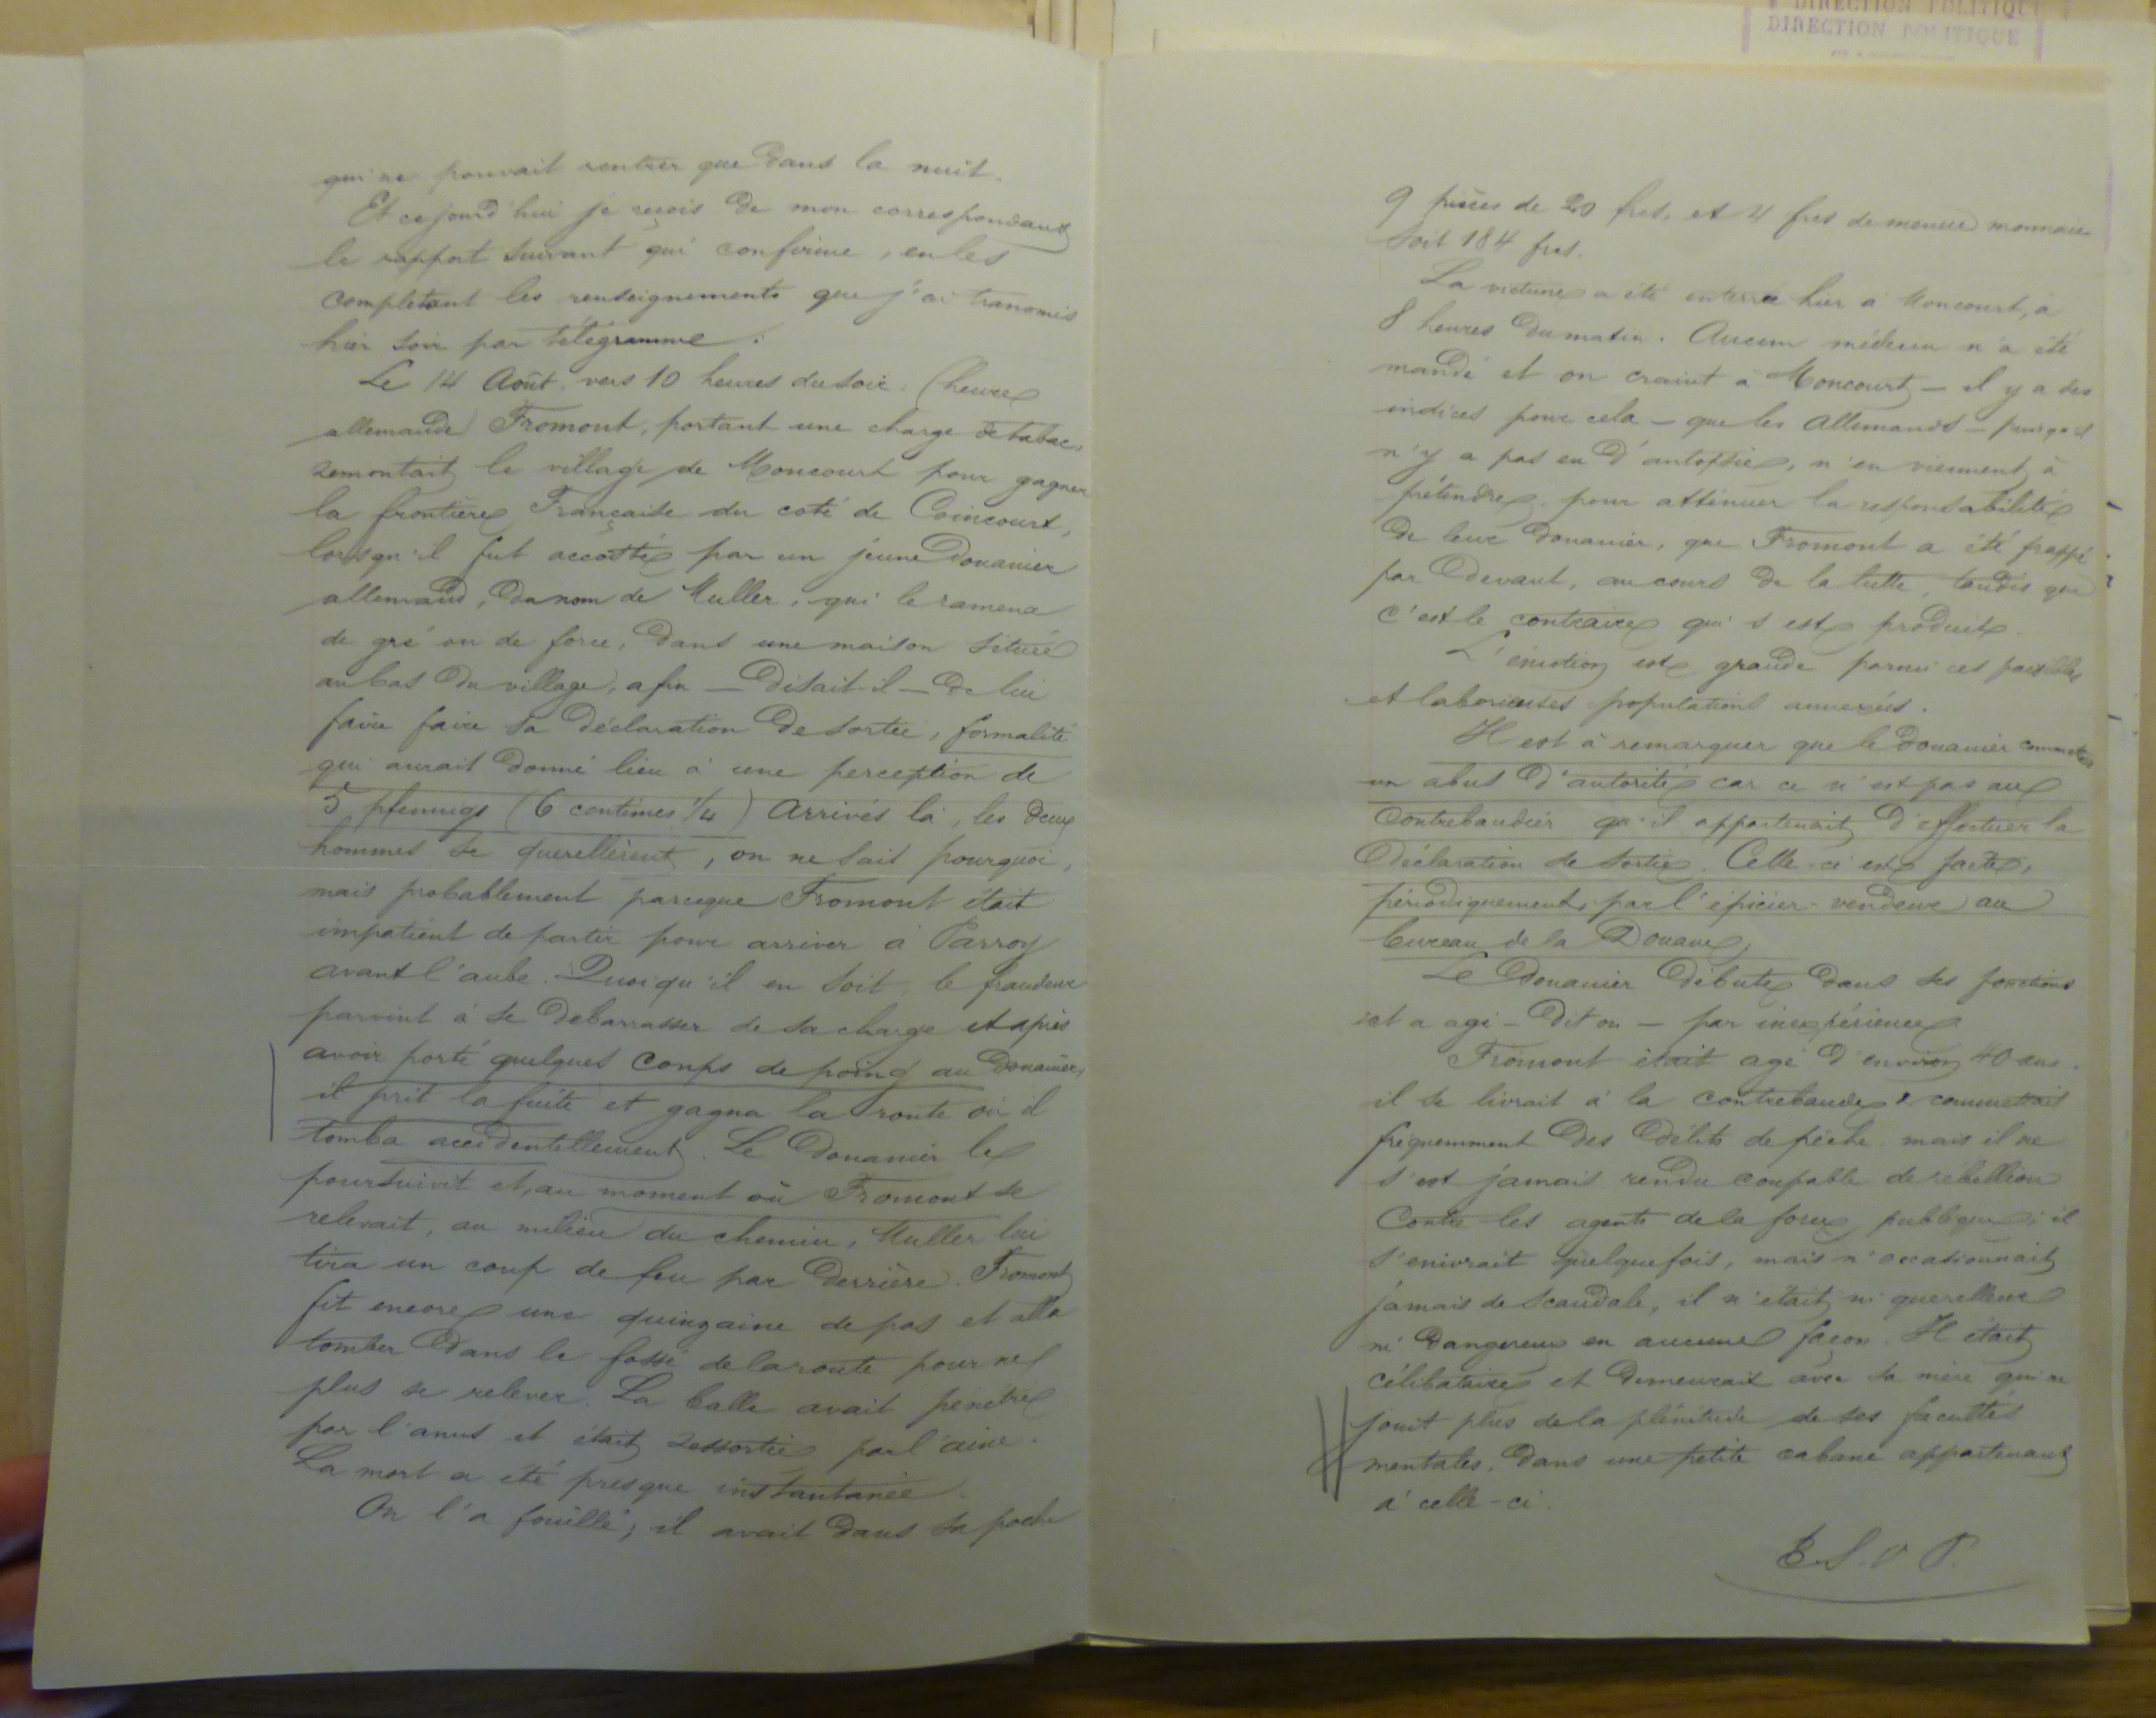 qui ne pouvait rentrer que dans la nuit.
Et ce jourd'hui je reçois de mon correspondant
le rapport suivant qui confirme, en les
completant les renseignements que j'ai transmis
hier soir par télégramme.
Le 14 Août, vers 10 heures du soir (heure
allemande) Fromont, portant une charge de tabac,
remontait le village de Moncourt pour gagner
la frontière Française du coté de Coincourt,
lorsqu'il fut accosté par un jeune Douanier
allemand, du nom de Muller, qui le ramena
de gré ou de force, dans une maison située
au bas du village, afin — disait-il — de lui
faire faire sa déclaration de sortie, formalité
qui aurait donné lieu à une perception de
5 pfennigs (6 centimes 1/4) Arrivés là, les deux
hommes se querellèrent, on ne sait pourquoi,
mais probablement parceque Fromont était
impatient de partir pour arriver à Parroy
avant l'aube. Quoiqu'il en soit, le fraudeur
parvint à se debarrasser de sa charge et après
avoir porté quelques coups de poing au Douanier,
il prit la fuite et gagna la route où il
tomba accidentellement. Le Douanier le
poursuivit et, au moment où Fromont se
relevait, au milieu du chemin, Muller lui
tira un coup de feu par derrière. Fromont
fit encore une quinzaine de pas et alla
tomber dans le fossé de la route pour ne
plus se relever. La balle avait penetré
par l'anus et était ressortie par l'aine.
La mort a été presque instantanée.
On l'a fouillé; il avait dans sa poche
DIRECTION POLITIQUE
DIRECTION POLITIQUE
9 pièces de 20 frcs, et 4 frcs de menue monnaie
soit 184 frcs.
La victime a été enterrée hier à Moncourt, à
8 heures du matin. Aucun médecin n'a été
mandé et on craint à Moncourt — il y a des
indices pour cela — que les Allemands — puisqu'il
n'y a pas eu d'autopsie, n'en viennent à
prétendre, pour atténuer la responsabilité
de leur douanier, que Fromont a été frappé
par devant, au cours de la lutte, tandis que
c'est le contraire qui s'est produit.
L'émotion est grande parmi ces paisibles
et laborieuses populations annexées.
Il est à remarquer que le douanier commettait
un abus d'autorité car ce n'est pas au
contrebandier qu'il appartenait d'effectuer la
déclaration de sortie. Celle-ci est faite,
périodiquement, par l'épicier-vendeur au
bureau de la Douane.
Le Douanier débute dans ses fonctions
et a agi — dit on — par inexpérience
Fromont était agé d'environ 40 ans.
il se livrait à la contrebande & commettait
fréquemment des délits de pêche, mais il ne
s'est jamais rendu coupable de rébellion
contre les agents de la force publique; il
s'enivrait quelquefois, mais n'occasionnait
jamais de scandale, il n'était ni querelleur
ni dangereux en aucune façon. Il était
célibataire et demeurait avec sa mère qui ne
jouit plus de la plénitude de ses facultés
mentales, dans une petite cabane appartenant
à celle-ci.
T.S.V.P.